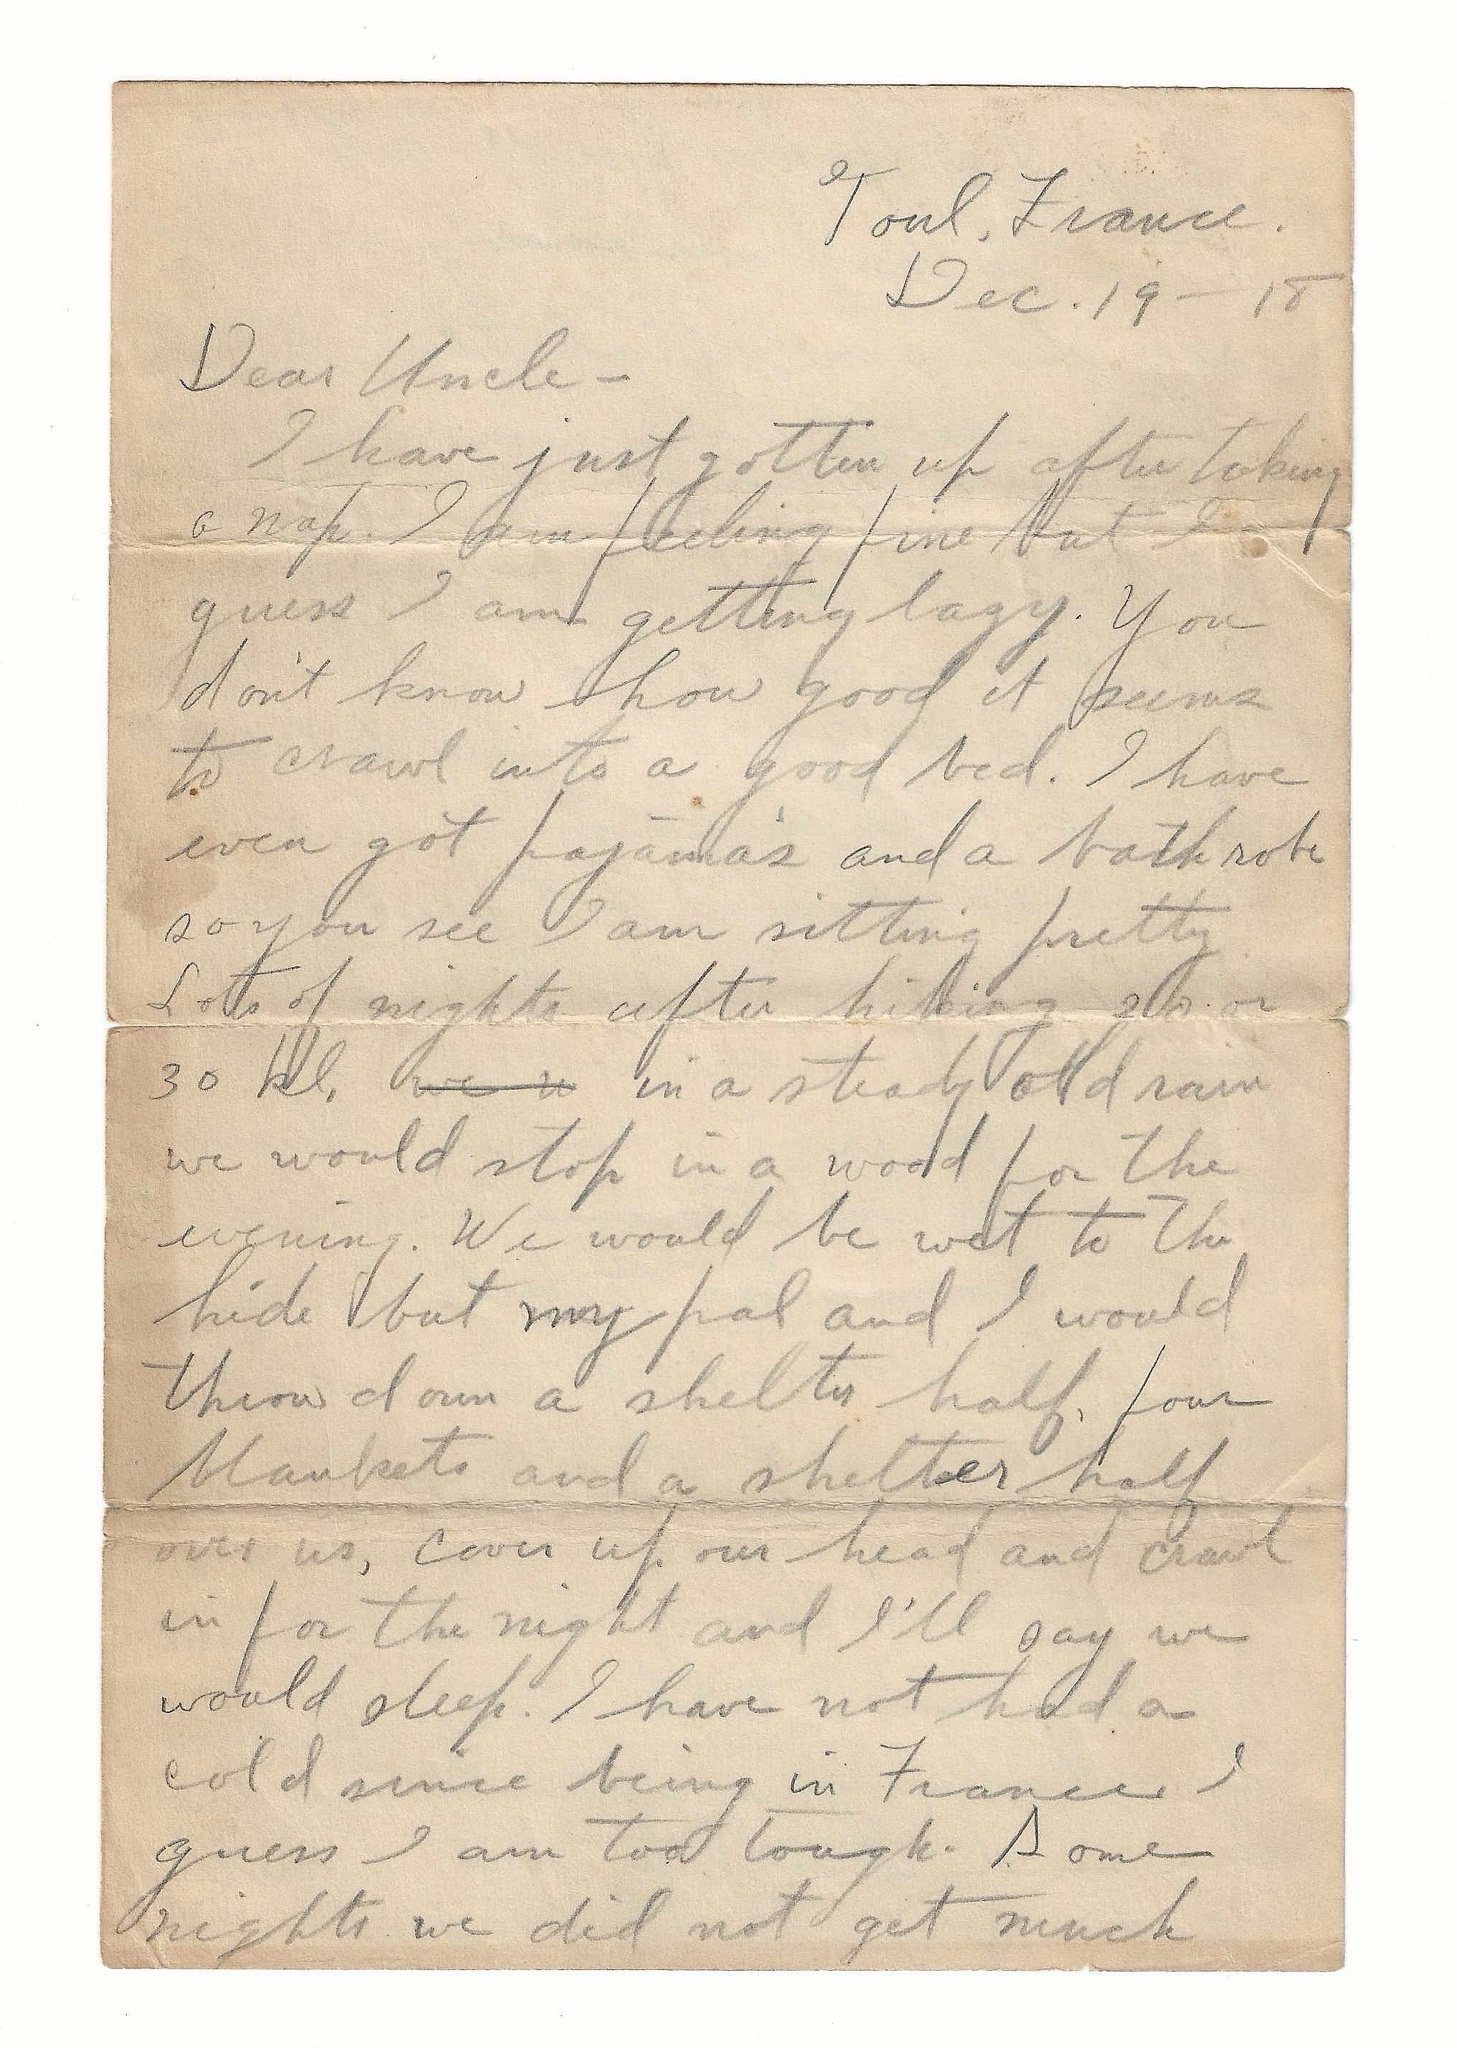 Toul, France.
Dec. 19 - 18
Dear Uncle -
I have just gotten up after taking
a nap. I am feeling fine but I
guess I am getting lazy. You
don't know how good it seems
to crawl into a good bed. I have
even got pajama's and a bath robe
so you see I am sitting pretty
Lots of nights after hiking 20 or
30 kl. we w in a steady old rain
we would stop in a wood for the
evening. We would be wet to the
hide but my pal and I would
throw down a shelter half, four
blankets and a shelter half
over us, cover up our head and crawl
in for the night and I'll say we
would sleep. I have not had a
cold since being in France. I
guess I am too tough. Some
nights we did not get much